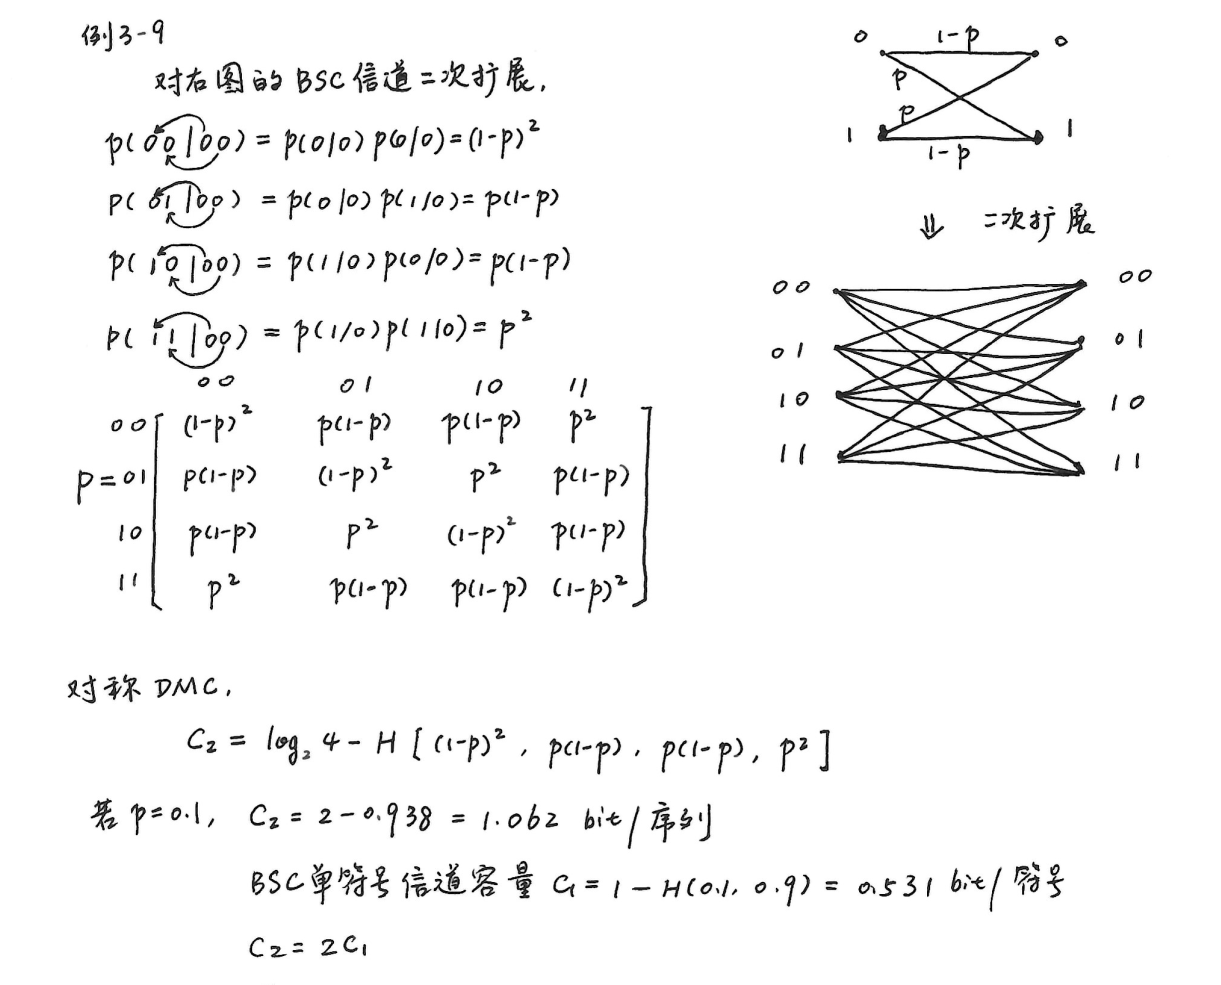 例3-9
对右图的BSC信道二次扩展,
p(00|00) = p(0|0) p(0|0) = (1-p)²
p(01|00) = p(0|0) p(1|0) = p(1-p)
p(10|00) = p(1|0) p(0|0) = p(1-p)
p(11|00) = p(1|0) p(1|0) = p²
00 01 10 11
00 (1-p)² p(1-p) p(1-p) p²
p = 01 p(1-p) (1-p)² p² p(1-p)
10 p(1-p) p² (1-p)² p(1-p)
11 p² p(1-p) p(1-p) (1-p)²
0 1-p 0
p
p
1 1-p 1
⇓ 二次扩展
00 00
01 01
10 10
11 11
对称DMC,
C₂ = log₂ 4 - H [ (1-p)², p(1-p), p(1-p), p² ]
若 p=0.1, C₂ = 2 - 0.938 = 1.062 bit/序列
BSC单符号信道容量 C₁ = 1 - H(0.1, 0.9) = 0.531 bit/符号
C₂ = 2C₁